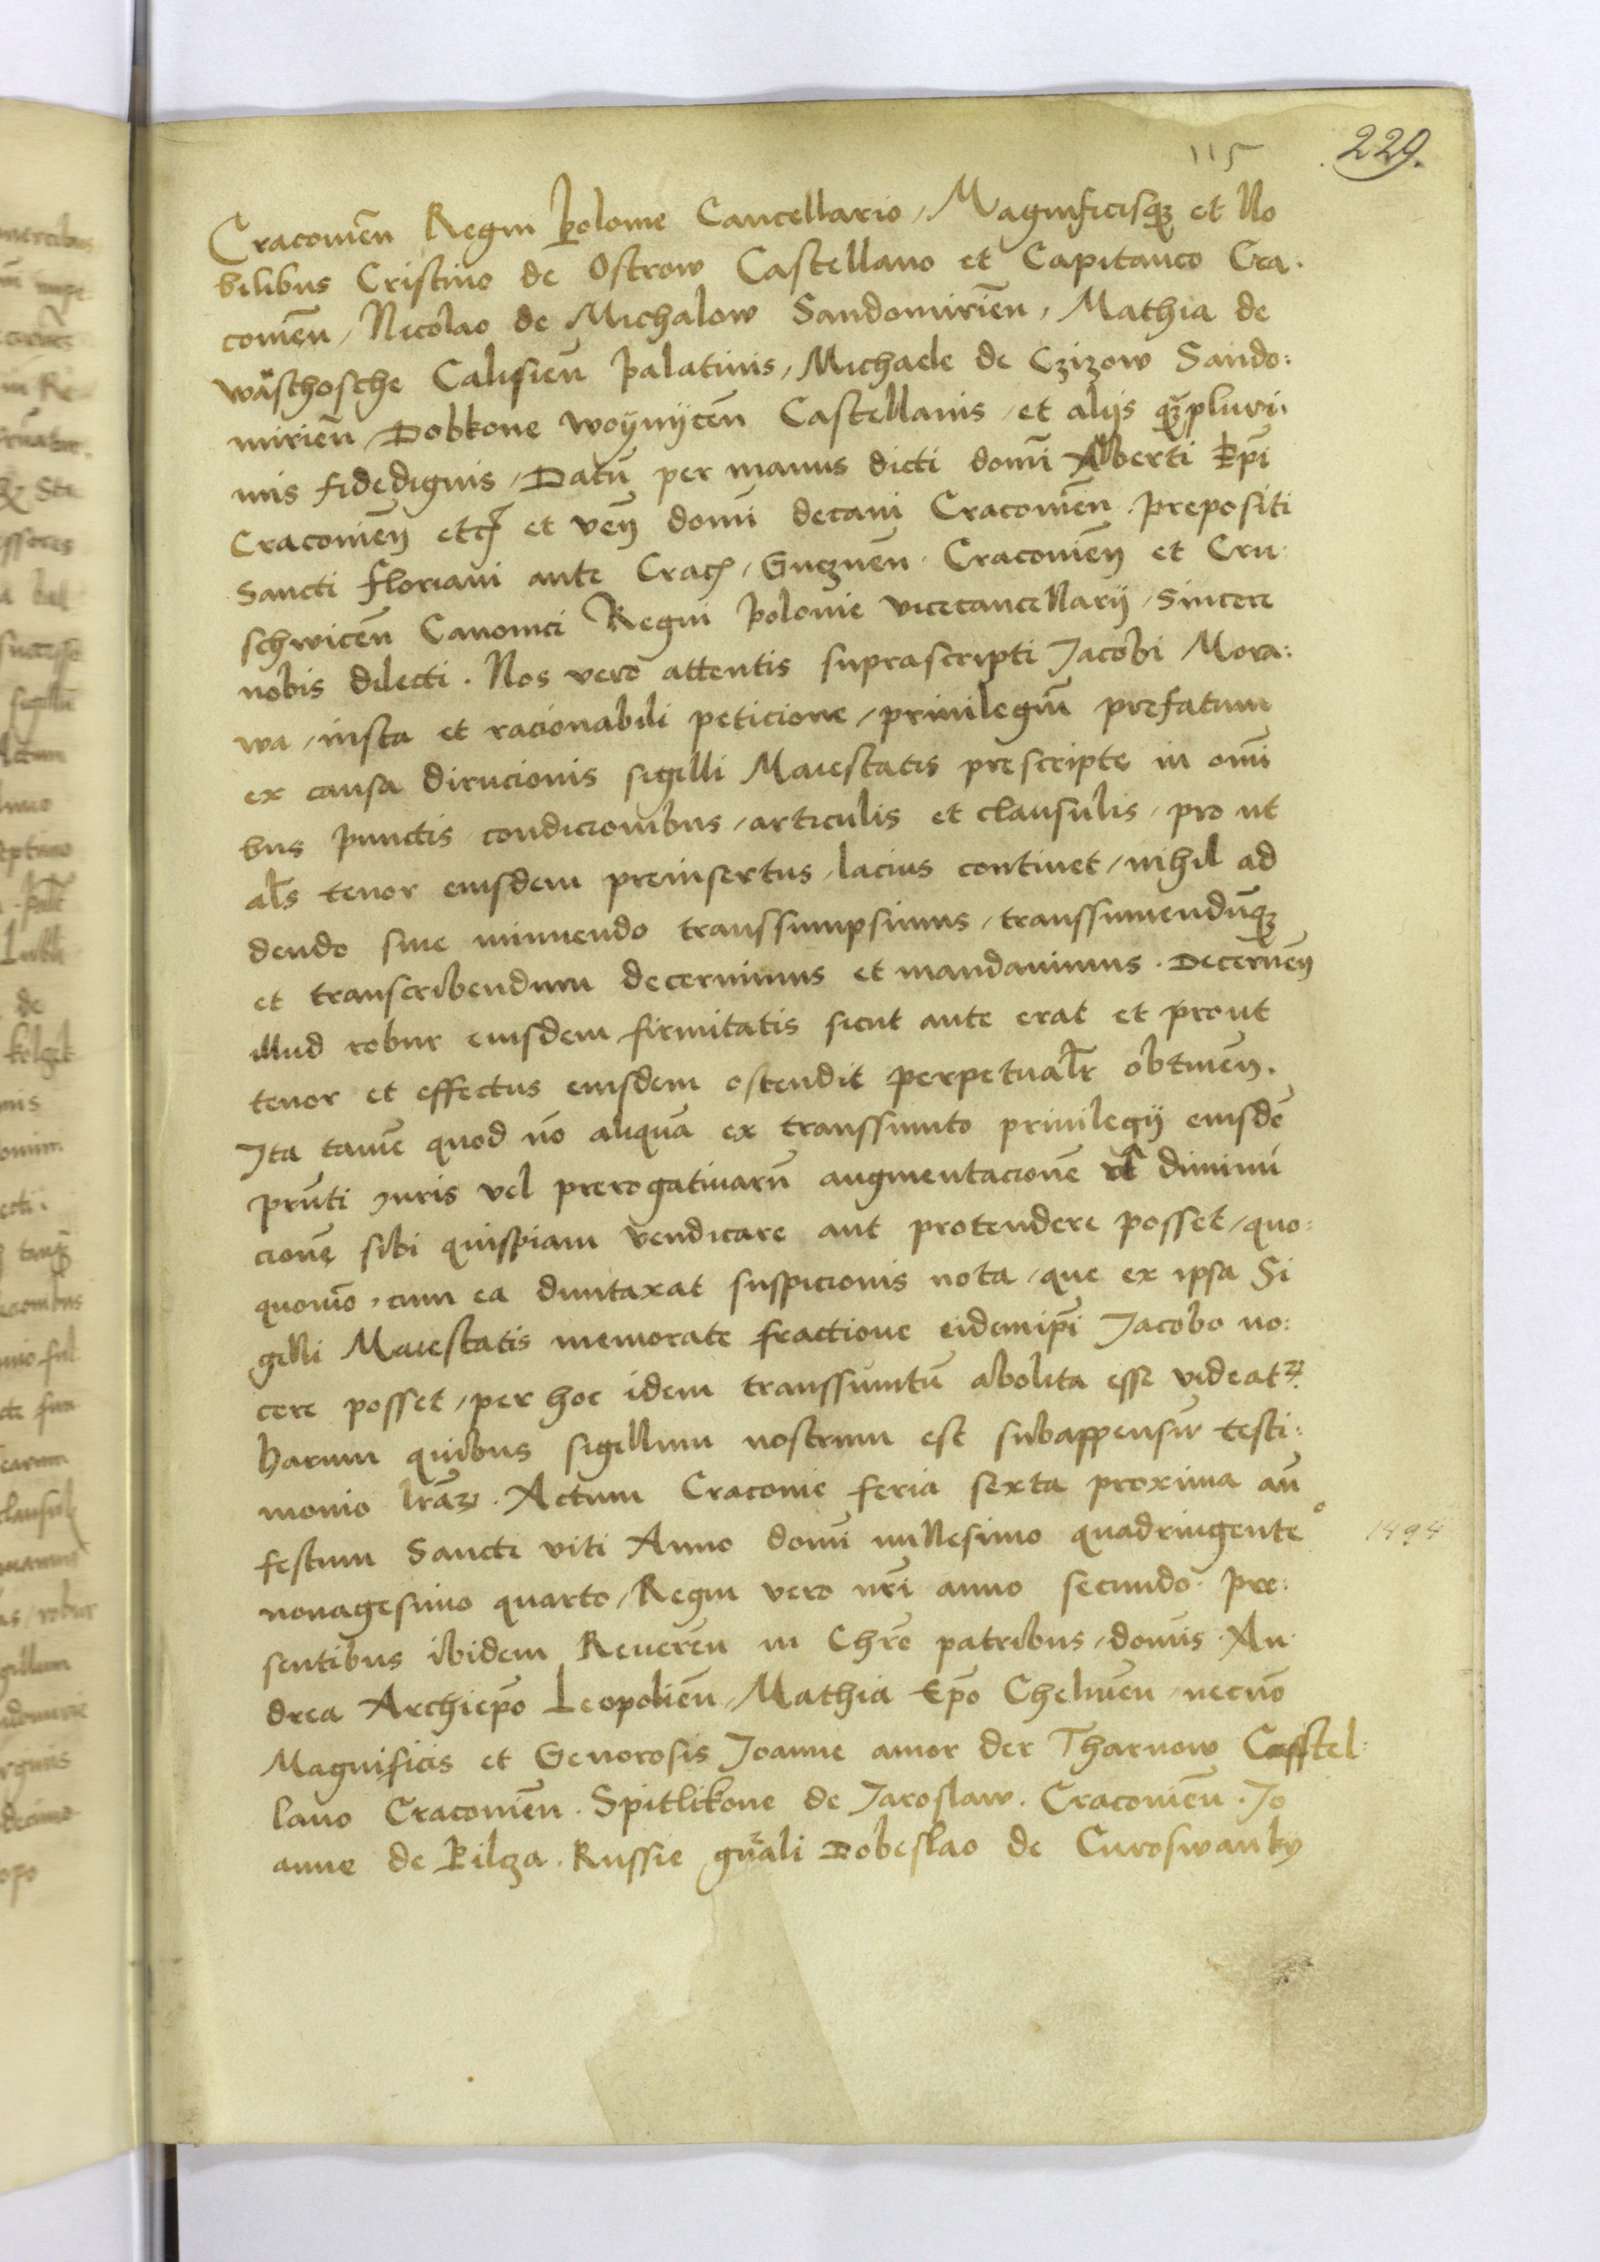 115
229.
Cracovieñ Regni Polonie Cancellario / Magnificisq3 et No
bilibus Cristino de Ostrow Castellano et Capitaneo Cra-
covieñ / Nicolao de Michalow Sandomirieñ / Mathia de
wäschosche Calisieñ palatinis / Michaele de Czizow Sando:
mirieñ / Dobkone woÿnÿceñ Castellanis / et alijs q̃3pluri-
mis fidedignis / Datū per manus dicti domī Alberti Ep̄i
Cracovieñ etc̃ et veñ domī decani Cracovieñ prepositi
Sancti floriani ante Crac̃ / Gnezneñ Cracovieñ et Cru-
schwiceñ Canonici Regni polonie vicecancellarij / Sincere
nobis dilecti . Nos vero attentis suprascripti Jacobi Mora:
wa / iusta et racionabili peticione / priuilegiū prefatum
ex causa dirucionis sigilli Maiestatis prescripte in omī
bus punctis condicionibus / articulis et clausulis / pro ut
al̄s tenor eiusdem preinsertus / lacius continet / nihil ad
dendo siue minuendo transsumpsimus / transsumendūq3
et transcribendum decernimus et mandauimus . Decerneñ
illud robur eiusdem firmitatis sicut ante erat et prout
tenor et effectus eiusdem ostendit perpetual̄r obtineñ .
Ita tamē quod nō aliquā ex transsumto priuilegij eiusdē
pr̄nti iuris vel prerogatiuarū augmentacionē vl̄ diminu
cionē sibi quispiam vendicare aut protendere posset / quo:
quomō / cum ea duntaxat suspicionis nota / que ex ipsa Si
gilli Maiestatis memorate fractione eidemip̄i Jacobo no:
cere posset / per hoc idem transsumtū abolita esse videatr̄
harum quibus sigillum nostrum est subappensū testi:
monio l̄rar̄ . Actum Cracovie feria sexta proxima añ
festum Sancti viti Anno domī millesimo quadringente°
1494
nonagesimo quarto / Regni vero nr̄i anno secundo . Pre:
sentibus ibidem Reuereñ in Chr̄o patribus / domīs . An
drea Archiep̄o Leopolieñ / Mathia Ep̄o Chelmeñ / necnō
Magnificis et Generosis Joanne amor der Tharnow Casstel:
lano Cracovieñ . Spitlikone de Jaroslaw . Cracovieñ . Jo
anne de Pilcza . Russie gn̄ali Dobeslao de Curoswanky